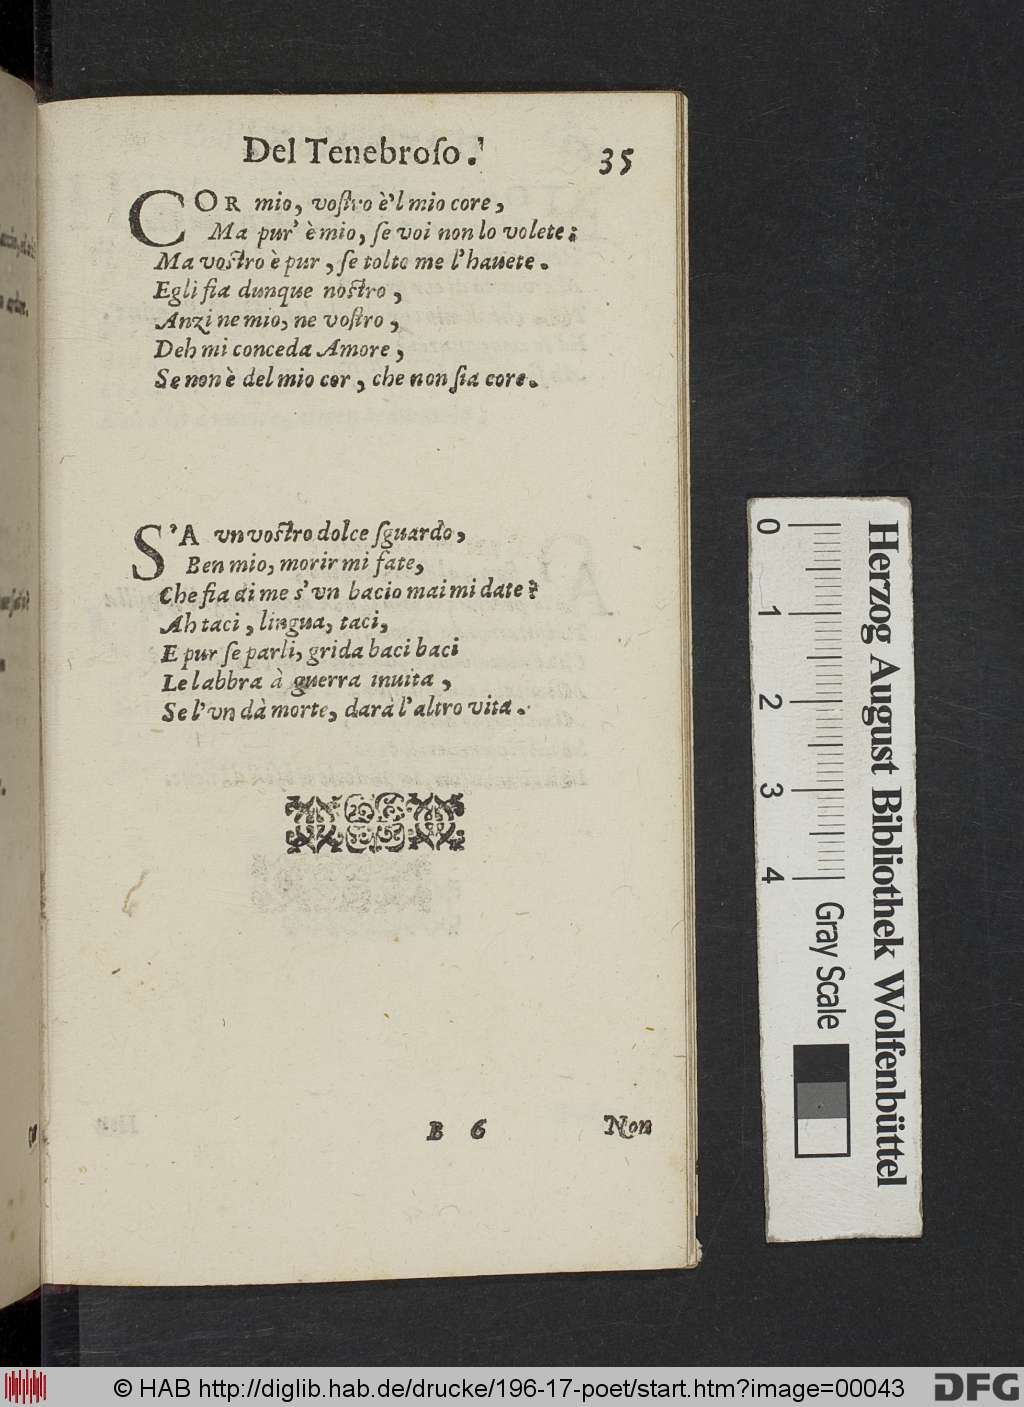 Del Tenebroſo.
35
COR mio, voſtro è'l mio core,
Ma pur' è mio, ſe voi non lo volete;
Ma voſtro è pur, ſe tolto me l'hauete.
Egli ſia dunque noſtro,
Anzi ne mio, ne voſtro,
Deh mi conceda Amore,
Se non è del mio cor, che non ſia core.
S'A vn voſtro dolce ſguardo,
Ben mio, morir mi fate,
Che fia di me s'vn bacio mai mi date?
Ah taci, lingua, taci,
E pur ſe parli, grida baci baci
Le labbra à guerra inuita,
Se l'vn dà morte, darà l'altro vita.
B 6
Non
0 1 2 3 4
Gray Scale
Herzog August Bibliothek Wolfenbüttel
© HAB http://diglib.hab.de/drucke/196-17-poet/start.htm?image=00043
DFG